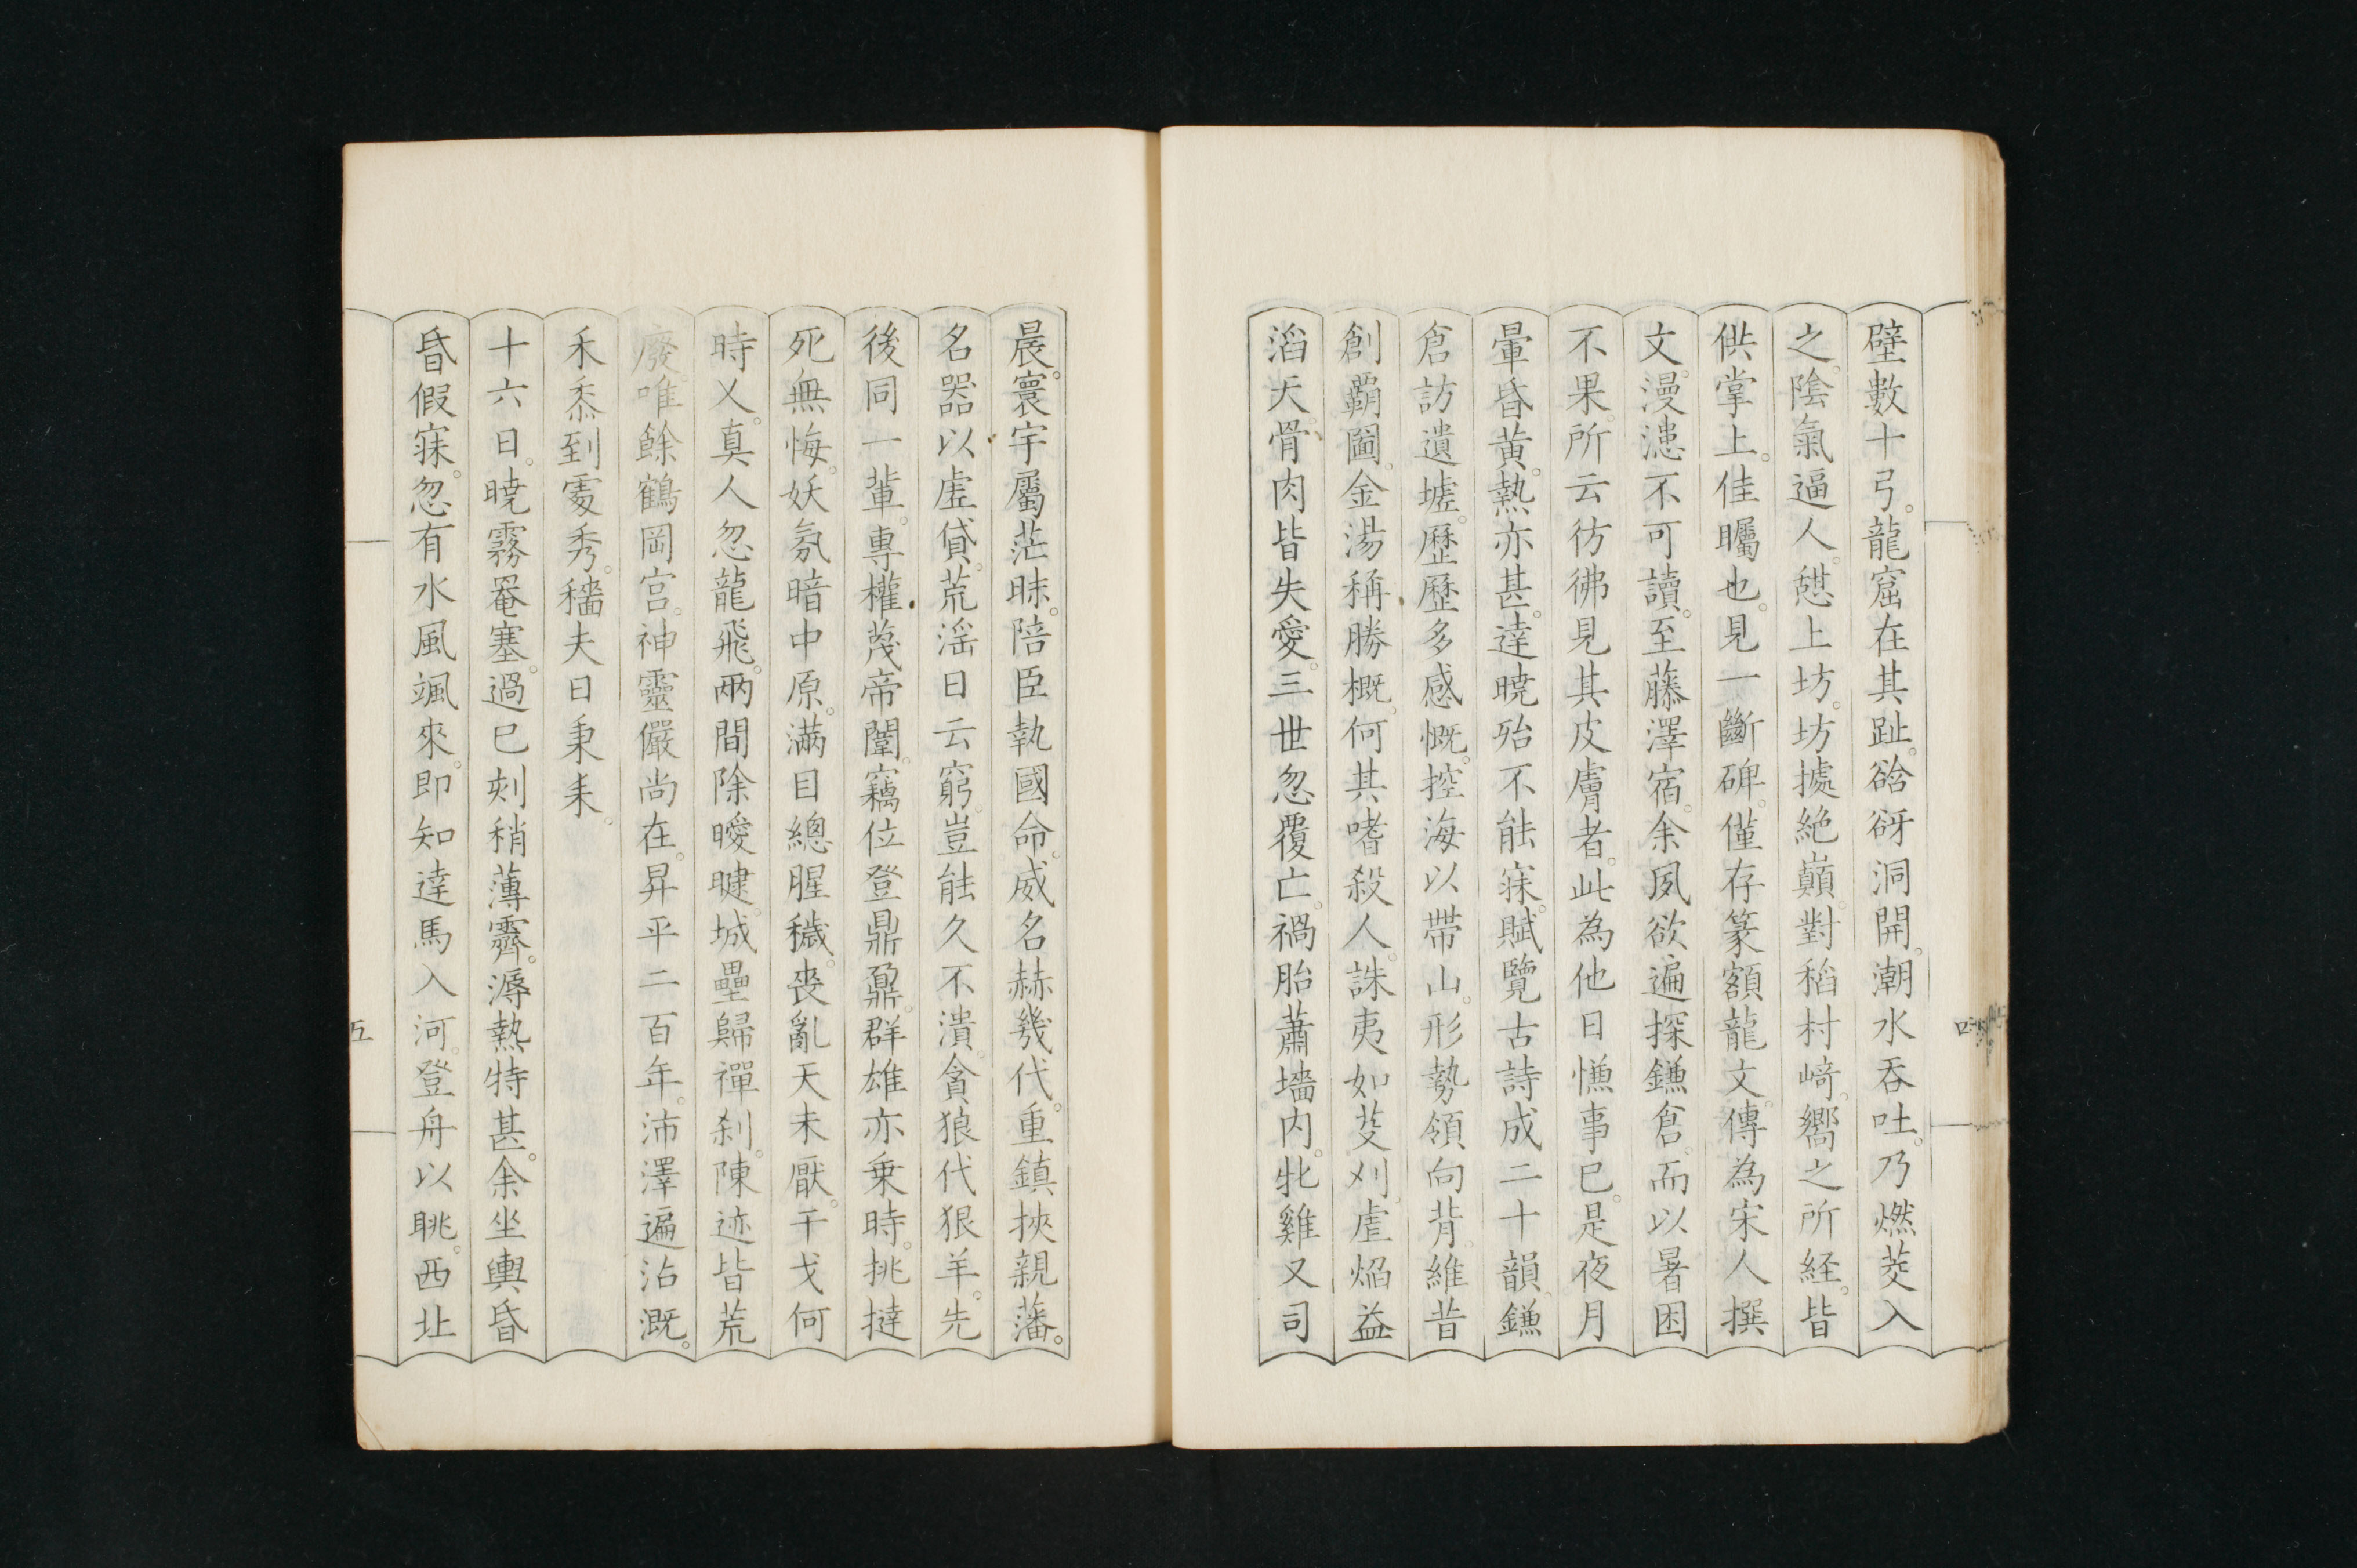 壁數十弓。龍窟在其趾。谽谺洞開。潮水吞吐。乃燃茭入
之。陰氣逼人。憇上坊。坊據絶巓。對稻村﨑。嚮之所経。皆
供掌上。佳矚也。見一斷碑。僅存篆額龍文。傳為宋人撰
文。漫漶不可讀。至藤澤宿。余夙欲遍探鎌倉。而以暑困
不果。所云彷彿見其皮膚者。此為他日慊事已。是夜月
暈昏黄。熱亦甚。達曉殆不能寐。賦覽古詩成二十韻。鎌
倉訪遺墟。歷歷多感慨。控海以帶山。形勢領向背。維昔
創覇圖。金湯稱勝概。何其嗜殺人。誅夷如芟刈。虐焰益
滔天。骨肉皆失愛。三世忽覆亡。禍胎蕭墻内。牝雞又司
晨。寰宇屬茫昧。陪臣執國命。威名赫幾代。重鎮挾親藩。
名器以虚貸。荒滛日云窮。豈能久不潰。貪狼代狠羊。先
後同一輩。專權蔑帝闈。竊位登鼎鼐。群雄亦乗時。挑撻
死無悔。妖氛暗中原。滿目總腥穢。喪亂天未厭。干戈何
時乂。真人忽龍飛。兩間除曖㬣。城壘歸禪刹。陳迹皆荒
廢。唯餘鶴岡宫。神靈儼尚在。昇平二百年。沛澤遍沾溉。
禾黍到處秀。穡夫日秉耒。
十六日。曉霧罨塞。過巳刻稍薄霽。溽熱特甚。余坐輿昏
昏假寐。忽有水風颯來。即知達馬入河。登舟以眺。西北
四
五